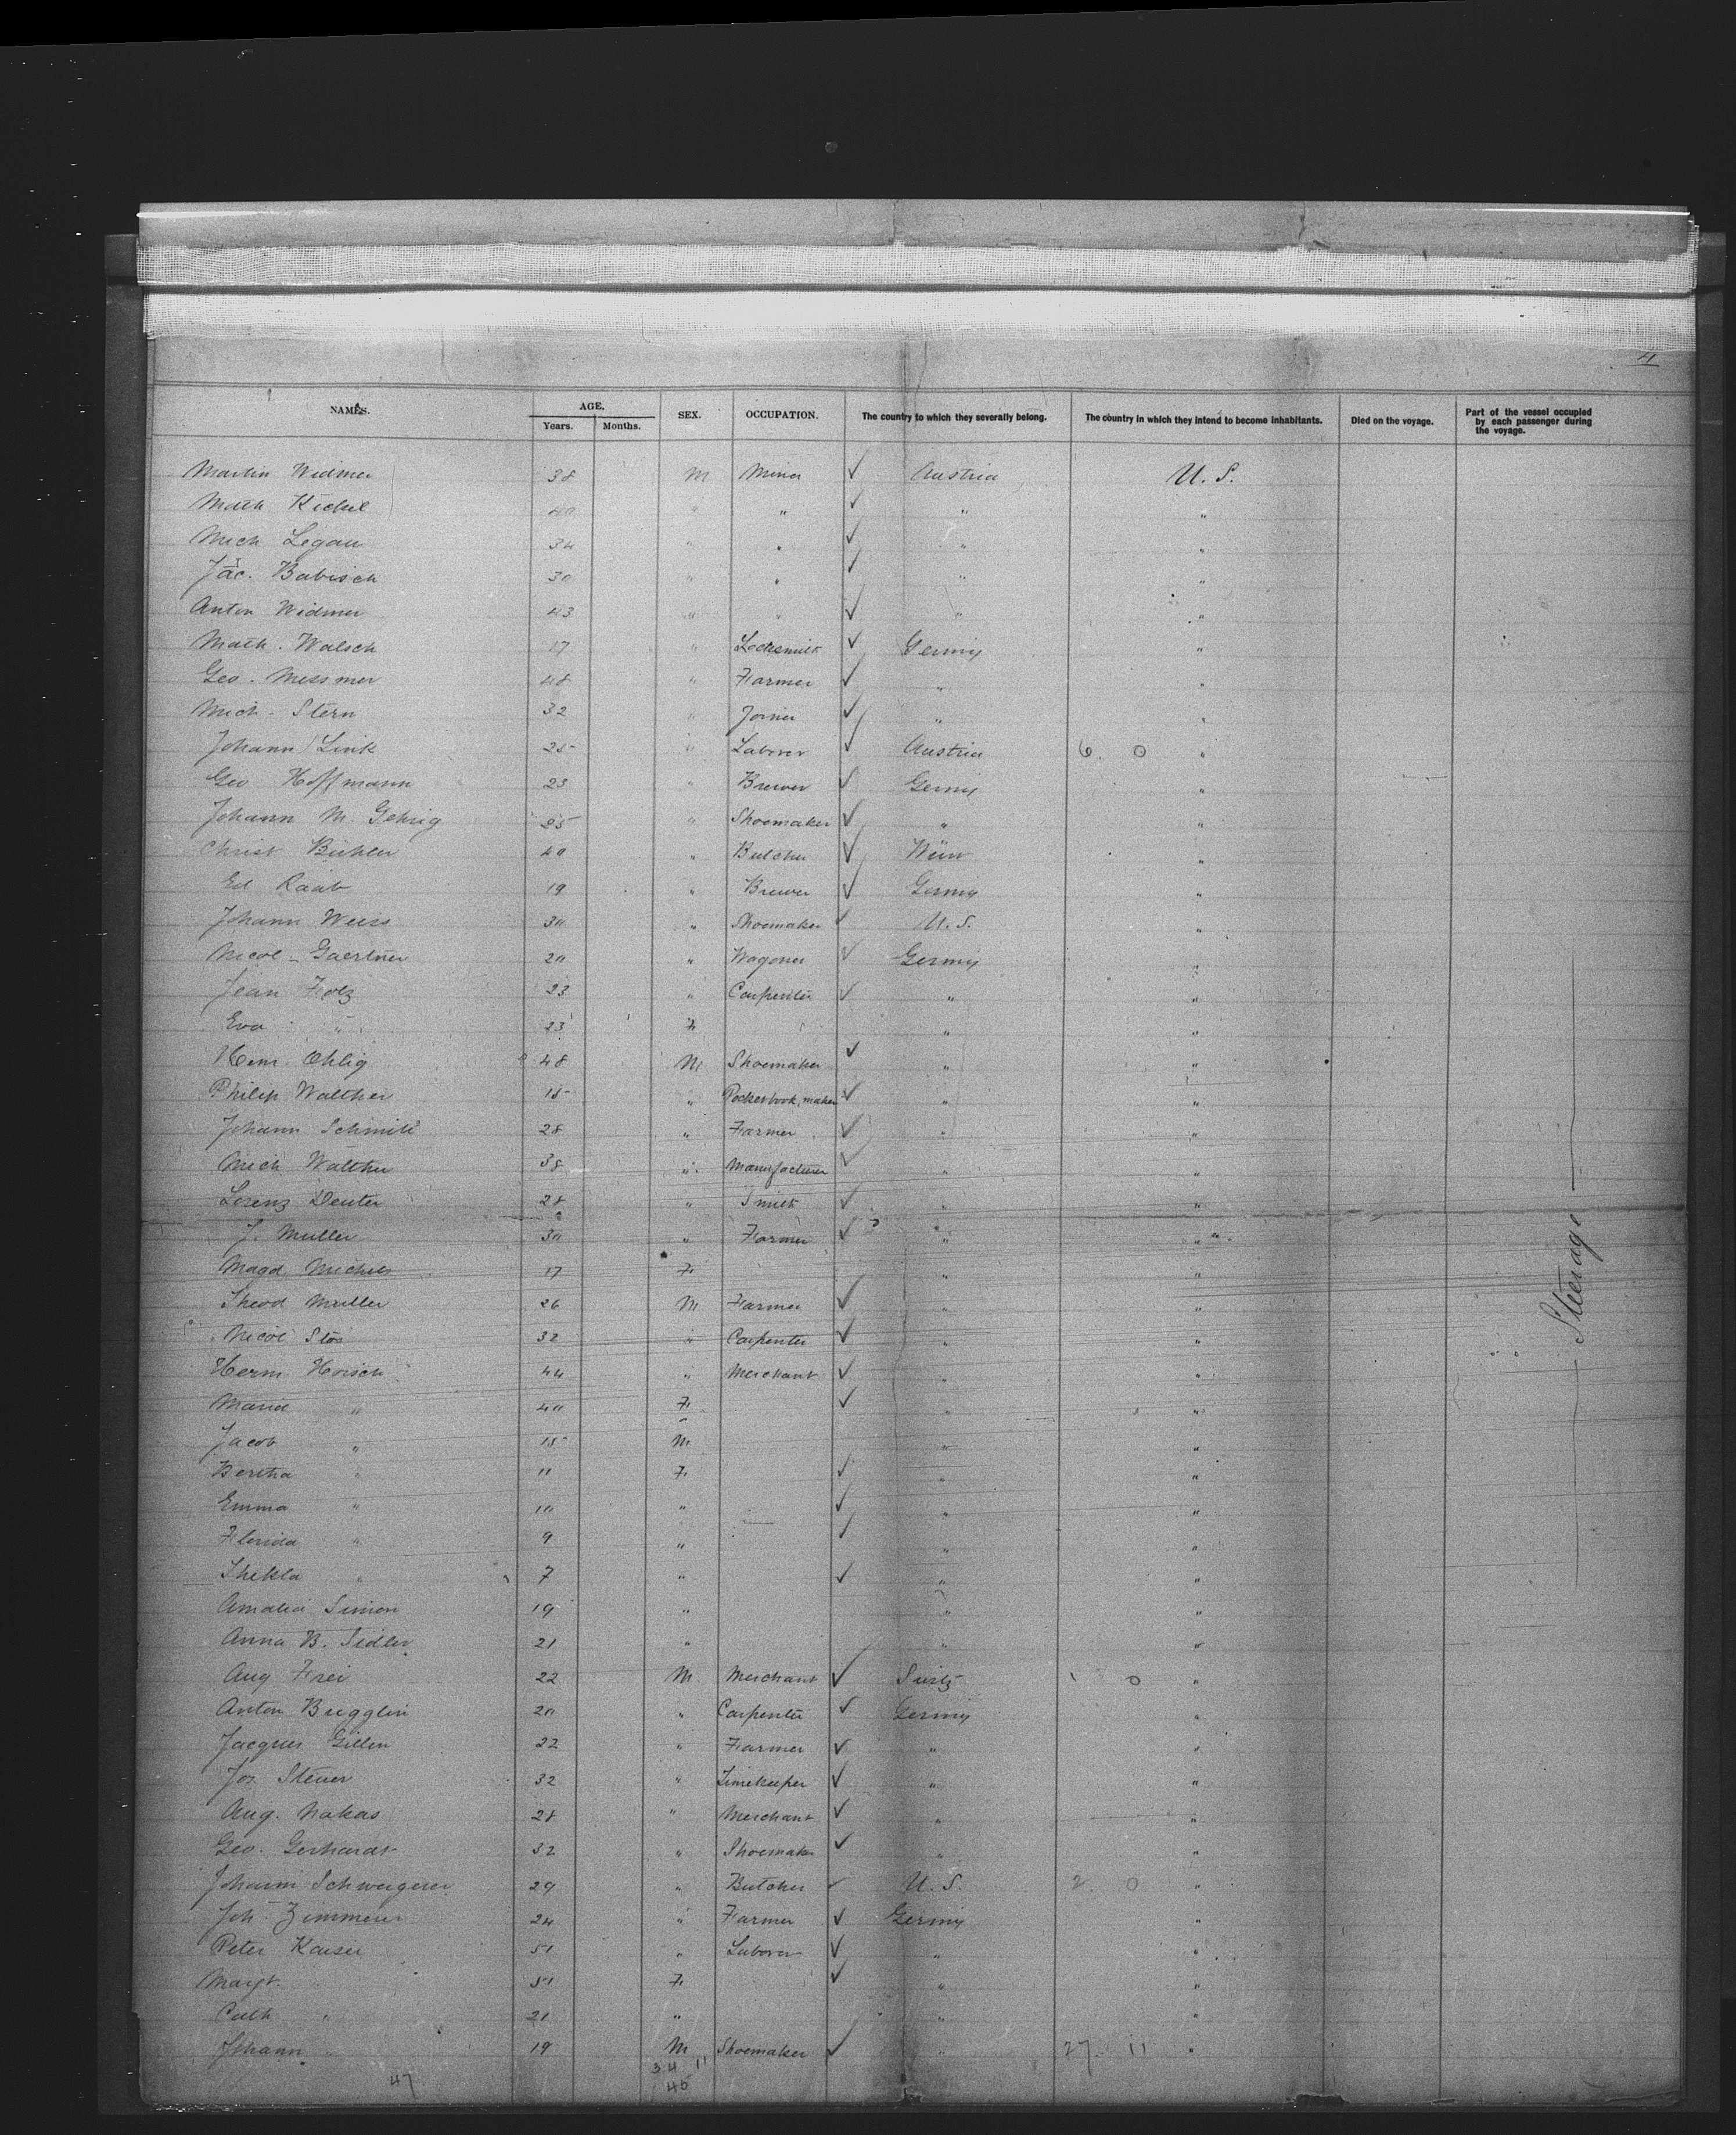 4
NAMES. AGE. Years. Months. SEX. OCCUPATION. The country to which they severally belong. The country in which they intend to become inhabitants. Died on the voyage. Part of the vessel occupied by each passenger during the voyage.
Martin Widmer 38 M Miner ✓ Austria U. S.
Math Kickel 40 " " ✓ " "
Mich Legau 34 " " ✓ " "
Jac. Babisch 30 " " ✓ " "
Anton Widmer 43 " " ✓ " "
Math. Walsch 17 " Locksmith ✓ Germy "
Geo. Messmer 48 " Farmer ✓ " "
Mich. Stern 32 " Joiner ✓ " "
Johann Link 25 " Laborer ✓ Austria 6. 0 "
Geo Hoffmann 23 " Brewer ✓ Germy "
Johann M. Gehrig 25 " Shoemaker ✓ " "
Christ Buhler 40 " Butcher ✓ "
Ed Raab 19 " Brewer ✓ Germy "
Johann Weiss 30 " Shoemaker ✓ U. S. "
Nicol Gaertner 20 " Wagoner ✓ Germy "
Jean Folz 23 " Carpenter ✓ " "
Eva " 23 F " "
Herm. Ohlig 48 M Shoemaker ✓ " "
Philip Walther 15 " Pocketbook maker ✓ " "
Johann Schmitt 28 " Farmer ✓ " "
Mich Walther 38 " Manufacturer ✓ " "
Lorenz Deuter 28 " Smith ✓ " "
J. Muller 30 " Farmer ✓ " "
Magd. Michels 17 F " "
Theod Muller 26 M Farmer ✓ " "
Nicol Stos 32 " Carpenter ✓ " "
Herm Hoisch 44 " Merchant ✓ " "
Maria " 40 F ✓ " "
Jacob " 15 M " "
Bertha " 11 F ✓ " "
Emma " 10 " ✓ " "
Florida " 9 " ✓ " "
Thekla " 7 " ✓ " "
Amalia Simon 19 " " "
Anna B. Sidler 21 " " "
Aug Frei 22 M Merchant ✓ Suitz 1 0 "
Anton Brugglin 20 " Carpenter ✓ Germy "
Jacques Gillen 22 " Farmer ✓ " "
Jos Steuer 32 " Timekeeper ✓ " "
Aug. Nakas 28 " Merchant ✓ " "
Geo. Gerhardt 32 " Shoemaker ✓ " "
Johann Schweigerer 29 " Butcher ✓ U. S. 2. 0 "
Joh Zimmerer 24 " Farmer ✓ Germy "
Peter Kaiser 51 " Laborer ✓ " "
Margt. 51 F ✓ " "
Cath " 21 " " "
Johann " 19 M Shoemaker ✓ " 27 11 "
47 34 11
45
Steerage